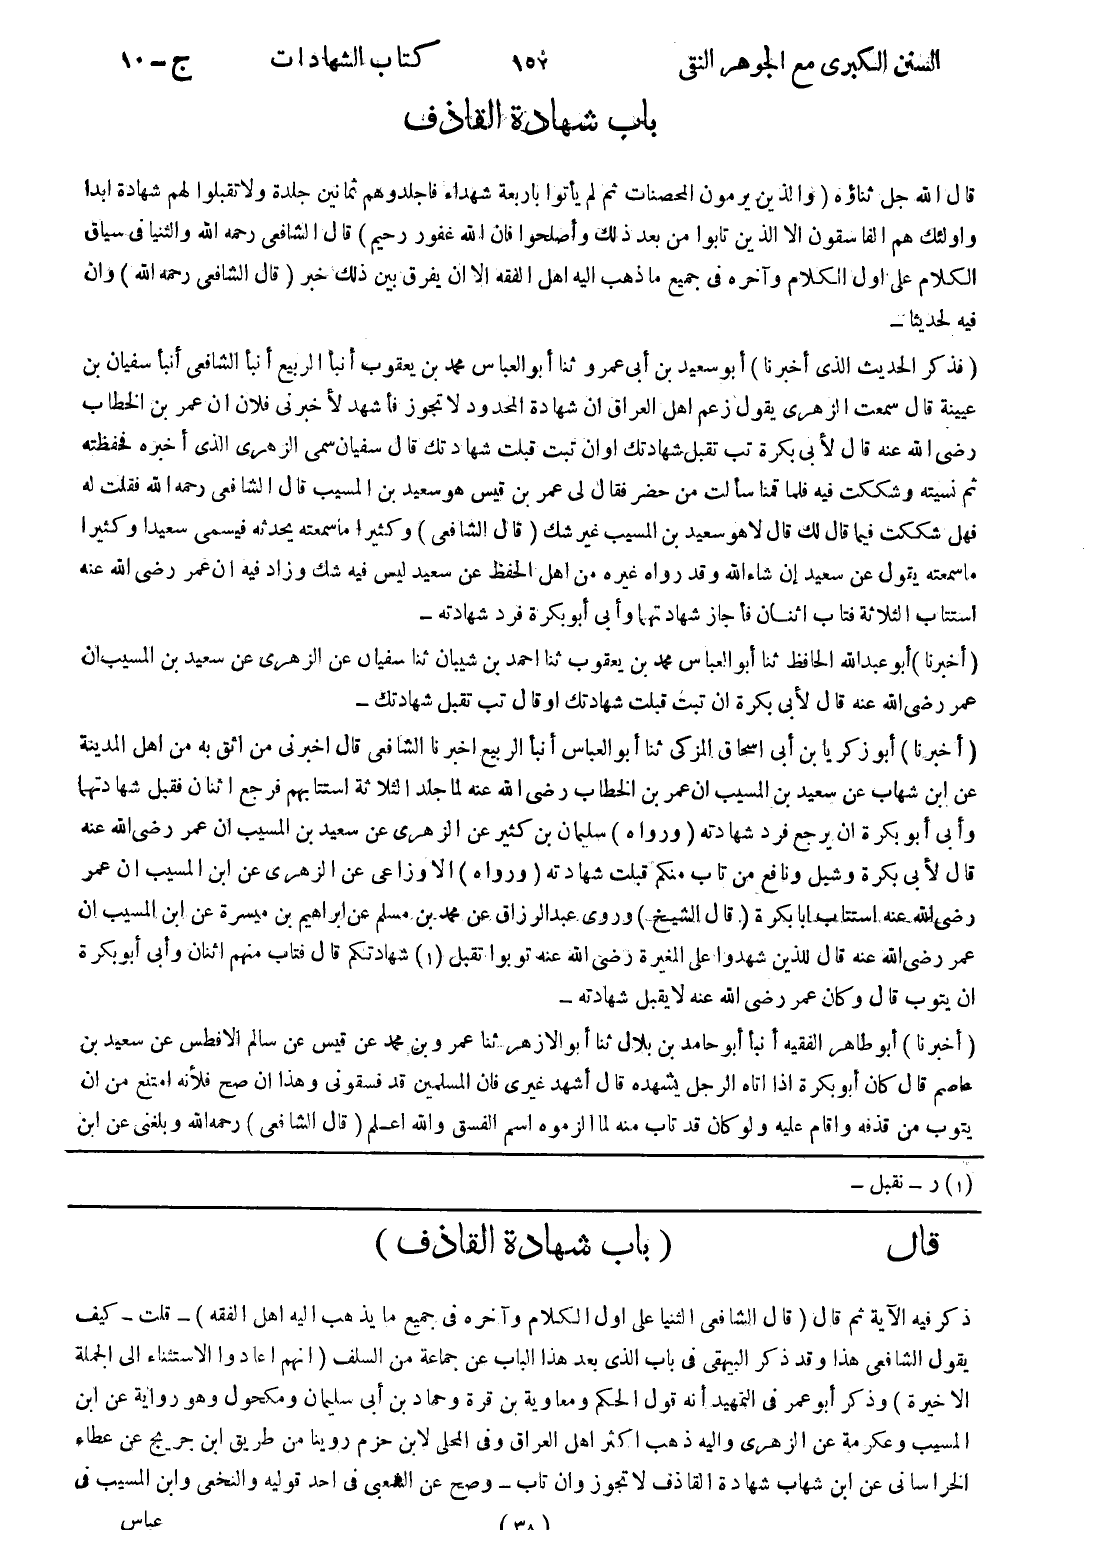 السنن الكبرى مع الجوهر النقى ١٥٢ كتاب الشهادات ج – ١٠
باب شهادة القاذف
قال الله جل ثناؤه ( والذين يرمون المحصنات ثم لم يأتوا باربعة شهداء فاجلدوهم ثمانين جلدة ولا تقبلوا لهم شهادة ابدا
واولئك هم الفاسقون الا الذين تابوا من بعد ذلك وأصلحوا فان الله غفور رحيم ) قال الشافعى رحمه الله والثنيا فى سياق
الكلام على اول الكلام وآخره فى جميع ما ذهب اليه اهل الفقه الا ان يفرق بين ذلك خبر ( قال الشافعى رحمه الله ) وان
فيه لحديثا –
( فذكر الحديث الذى أخبرنا ) أبو سعيد بن أبى عمرو ثنا أبو العباس محمد بن يعقوب أنبأ الربيع أنبأ الشافعى أنبأ سفيان بن
عيينة قال سمعت الزهرى يقول زعم اهل العراق ان شهادة المحدود لا تجوز فأشهد لأخبرنى فلان ان عمر بن الخطاب
رضى الله عنه قال لأبى بكرة تب تقبل شهادتك او ان تبت قبلت شهادتك قال سفيان سمى الزهرى الذى أخبره فحفظته
ثم نسيته وشككت فيه فلما قمنا سألت من حضر فقال لى عمر بن قيس هو سعيد بن المسيب قال الشافعى رحمه الله فقلت له
فهل شككت فيما قال لك قال لا هو سعيد بن المسيب غير شك ( قال الشافعى ) وكثيرا ما سمعته يحدثه فيسمى سعيدا وكثيرا
ما سمعته يقول عن سعيد إن شاء الله وقد رواه غيره من اهل الحفظ عن سعيد ليس فيه شك وزاد فيه ان عمر رضى الله عنه
استتاب الثلاثة فتاب اثنان فأجاز شهادتهما وأبى أبو بكرة فرد شهادته –
( أخبرنا ) أبو عبد الله الحافظ ثنا أبو العباس محمد بن يعقوب ثنا احمد بن شيبان ثنا سفيان عن الزهرى عن سعيد بن المسيب ان
عمر رضى الله عنه قال لأبى بكرة ان تبت قبلت شهادتك او قال تب تقبل شهادتك –
( أخبرنا ) أبو زكريا بن أبى اسحاق المزكى ثنا أبو العباس أنبأ الربيع اخبرنا الشافعى قال اخبرنى من اثق به من اهل المدينة
عن ابن شهاب عن سعيد بن المسيب ان عمر بن الخطاب رضى الله عنه لما جلد الثلاثة استتابهم فرجع اثنان فقبل شهادتهما
وأبى أبو بكرة ان يرجع فرد شهادته ( ورواه ) سليمان بن كثير عن الزهرى عن سعيد بن المسيب ان عمر رضى الله عنه
قال لأبى بكرة وشبل ونافع من تاب منكم قبلت شهادته ( ورواه ) الاوزاعى عن الزهرى عن ابن المسيب ان عمر
رضى الله عنه استتاب ابا بكرة ( قال الشيخ ) وروى عبد الرزاق عن محمد بن مسلم عن ابراهيم بن ميسرة عن ابن المسيب ان
عمر رضى الله عنه قال للذين شهدوا على المغيرة رضى الله عنه توبوا تقبل (١) شهادتكم قال فتاب منهم اثنان وأبى أبو بكرة
ان يتوب قال وكان عمر رضى الله عنه لا يقبل شهادته –
( أخبرنا ) أبو طاهر الفقيه أنبأ أبو حامد بن بلال ثنا أبو الازهر ثنا عمرو بن محمد عن قيس عن سالم الافطس عن سعيد بن
عاصم قال كان أبو بكرة اذا اتاه الرجل يشهده قال أشهد غيرى فان المسلمين قد فسقونى وهذا ان صح فلأنه امتنع من ان
يتوب من قذفه واقام عليه ولو كان قد تاب منه لما الزموه اسم الفسق والله اعلم ( قال الشافعى ) رحمه الله وبلغنى عن ابن
(١) ر – نقبل –
قال ( باب شهادة القاذف )
ذكر فيه الآية ثم قال ( قال الشافعى الثنيا على اول الكلام وآخره فى جميع ما يذهب اليه اهل الفقه ) – قلت – كيف
يقول الشافعى هذا وقد ذكر البيهقى فى باب الذى بعد هذا الباب عن جماعة من السلف ( انهم اعادوا الاستثناء الى الجملة
الاخيرة ) وذكر أبو عمر فى التمهيد أنه قول الحكم ومعاوية بن قرة وحماد بن أبى سليمان ومكحول وهو رواية عن ابن
المسيب وعكرمة عن الزهرى واليه ذهب اكثر اهل العراق وفى المحلى لابن حزم روينا من طريق ابن جريج عن عطاء
الخراسانى عن ابن شهاب شهادة القاذف لا تجوز وان تاب – وصح عن الشعبى فى احد قوليه والنخعى وابن المسيب فى
(٣٨) عباس